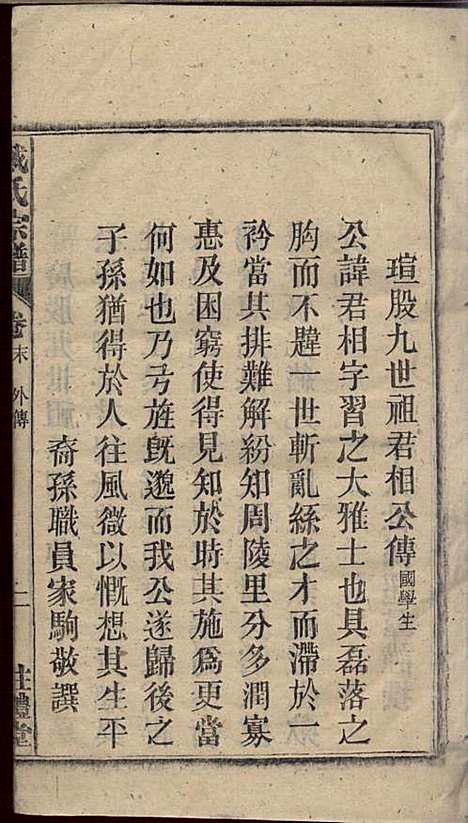 瑄股九世祖君相公傳國學生
公諱君相字習之大雅士也具磊落之
胸而不韙一世斬亂絲之才而滯於一
衿當其排難解紛知周陵里分多潤寡
惠及困窮使得見知於時其施為更當
何如也乃弓旌既邈而我公遂歸後之
子孫猶得於人往風微以慨想其生平
裔孫職員家駒敬譔
氏宗譜
卷末 外傳
禮堂